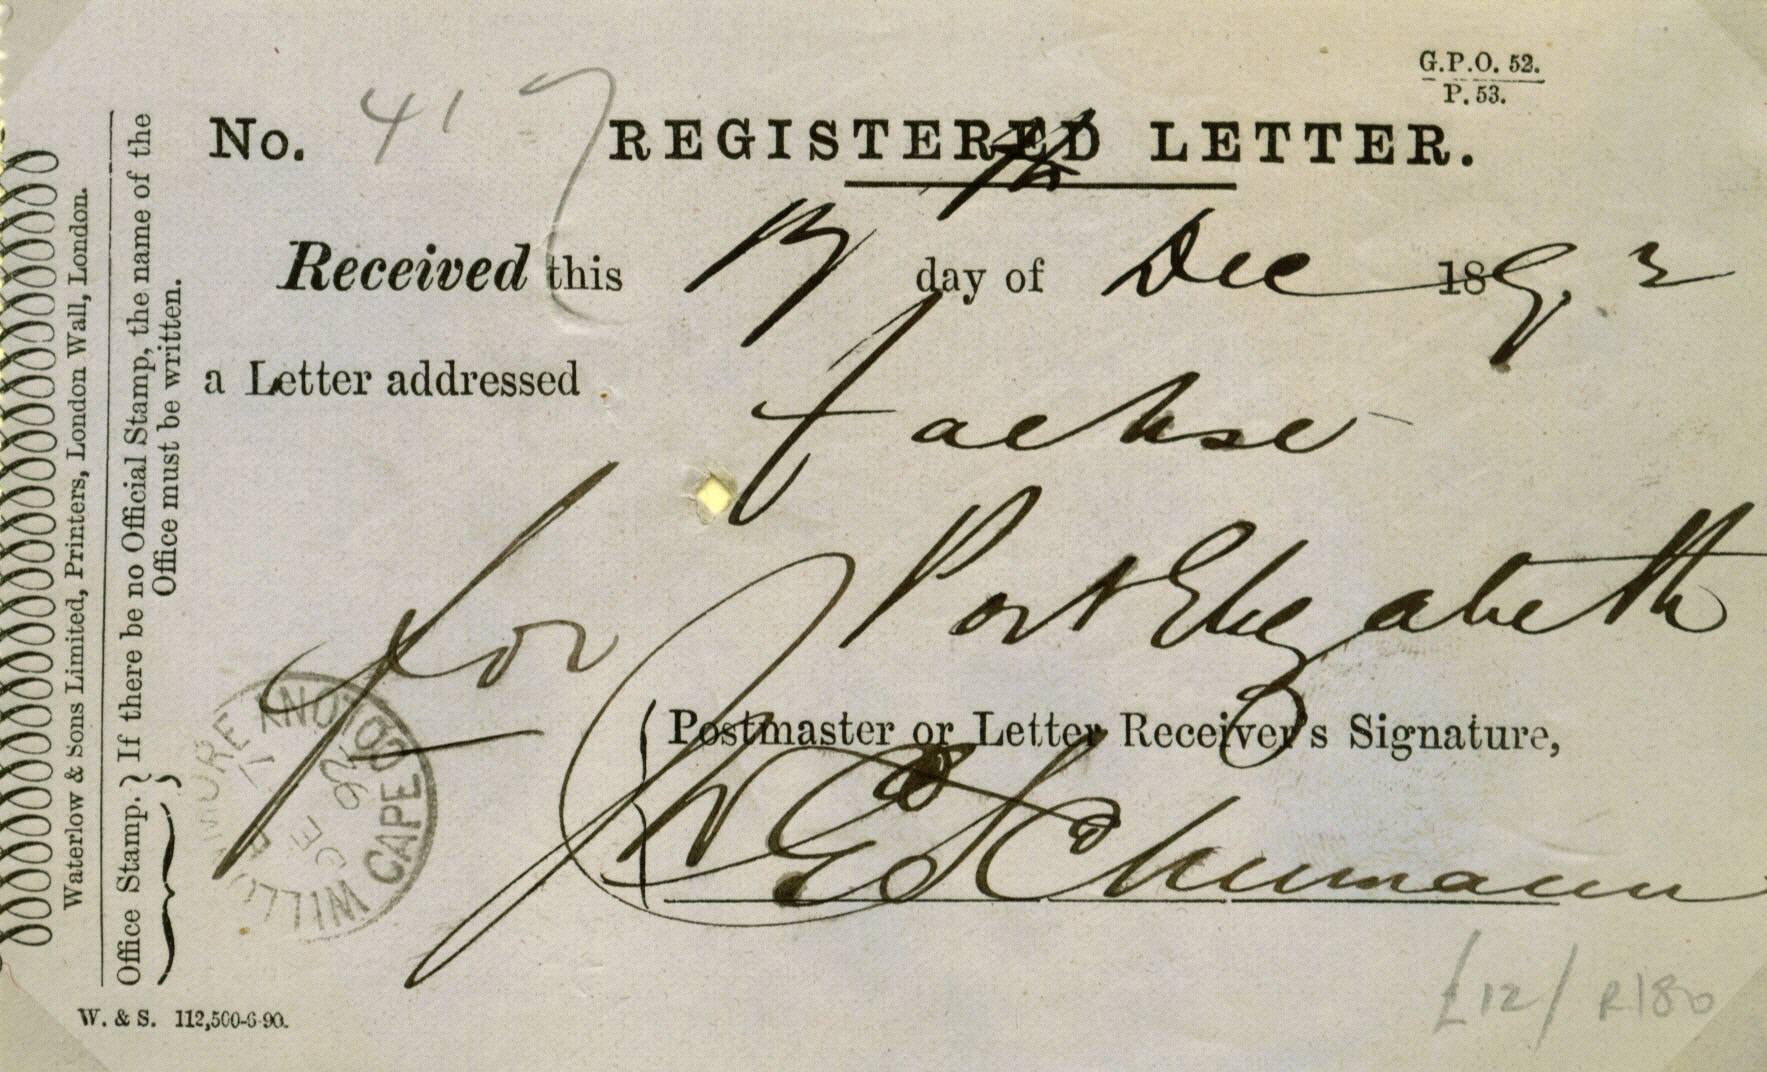 G.P.O. 52.
P. 53.
No. 417 REGISTERED LETTER.
Received this 17 th day of Dec 1892
a Letter addressed
Port Elizabeth
for
Postmaster or Letter Receiver's Signature,
Schumann
Office Stamp. } If there be no Official Stamp, the name of the
Office must be written.
Waterlow & Sons Limited, Printers, London Wall, London.
W. & S. 112,500-6-90.
CAPE COLONY
DE
92
£12/ R180